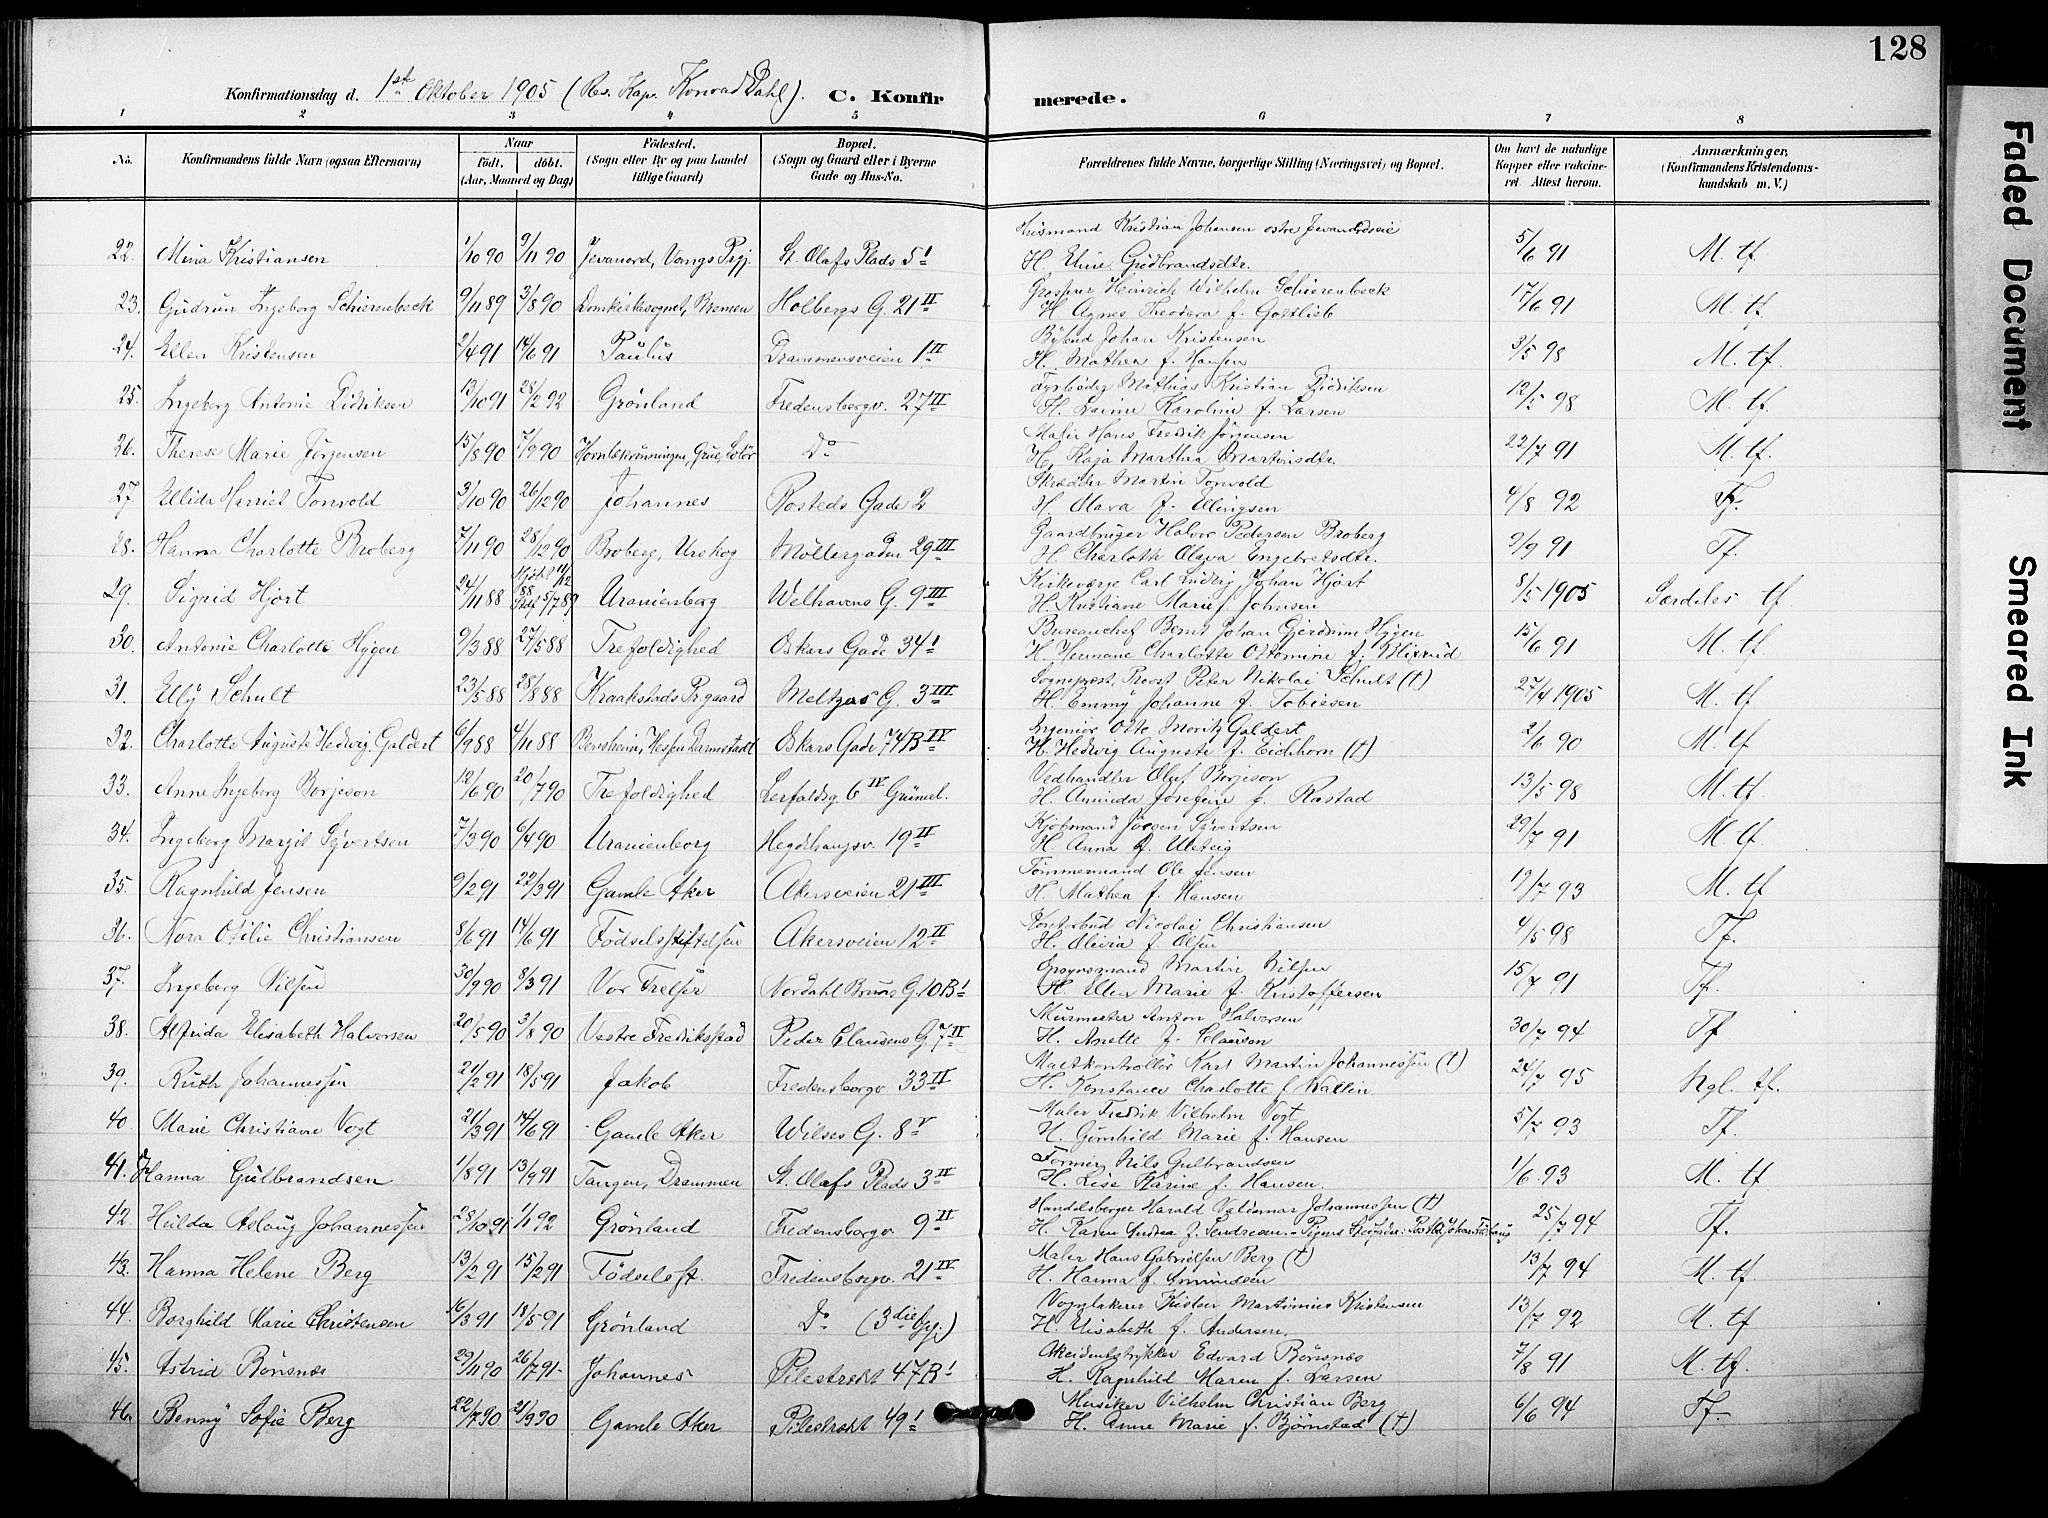 128
Konfirmationsdag d. 1ste Oktober 1905 (Res. Kap. Konrad Dahl). C. Konfir merede.
1 2 3 4 5 6 7 8
No. Konfirmandens fulde Navn (ogsaa Efternavn) Naar født, døbt. (Aar, Maaned og Dag) Fødested. (Sogn eller By og paa Landet tillige Gaard) Bopæl. (Sogn og Gaard eller i Byerne Gade og Hus-No. Forældrenes fulde Navne, borgerlige Stilling (Næringsvei) og Bopæl. Om havt de naturlige Kopper eller vakcineret. Attest herom. Anmærkninger, (Konfirmandens Kristendomskundskab m. V.)
22. Mina Kristiansen 1/10 90 9/11 90 Jevanord, Vangs Prgj. St. Olafs Plads 5 I Husmand Kristian Johansen østre Jevanordseie 5/6 91 M. tf.
H. Eline Gudbrandsdtr.
23. Gudrun Ingeborg Schierenbeck 9/11 89 3/8 90 Domkirkesognet, Bremen Holbergs G. 21 II Grosserer Heinrich Wilhelm Schierenbeck 17/6 91 M. tf
H. Agnes Theodora f. Gottlieb
24. Ellen Kristensen 2/4 91 14/6 91 Paulus Drammensveien 1 II Bybud Johan Kristensen 3/5 98 M. tf.
H. Mathea f. Hansen
25. Ingeborg Antonie Didriksen 13/10 91 28/2 92 Grönland Fredensborgv. 27 II Fyrbøder Mathias Kristian Didriksen 12/5 98 M. tf.
H. Lovine Karoline f. Larsen
26. Therese Marie Jörgensen 15/8 90 7/9 90 Hornbekrönningen, Grue, Solör Do Maler Hans Fredrik Jörgensen 22/7 91 M. tf.
H. Kaja Marthea Martinsdtr.
27. Ellida Harriet Tonvold 3/10 90 26/12 90 Johannes Rosteds Gade 2 Skrædder Martin Tonvold 4/8 92 Tf.
H. Olava f. Ellingsen
28. Hanna Charlotte Broberg 7/11 90 28/12 90 Broberg, Urskog Möllergaden 29 III Gaardbruger Halvor Pedersen Broberg 9/9 91 Tf.
H. Charlotte Olava Engebretsdtr.
29. Sigrid Hjort 24/11 88 Hjdbt 11/12 88 Stdf 5/7 89 Uranienborg Welhavens G. 9 III Kirkeværge Carl Ludvig Johan Hjort 8/5 1905 Særdeles tf.
H. Kristiane Marie f. Johnsen
30. Antonie Charlotte Hygen 9/3 88 27/5 88 Trefoldighed Oskars Gade 34 I Bureauchef Bernt Johan Gjerdrum Hygen 15/6 91 M. tf
H. Hermane Charlotte Ottomine f. Blixrud
31. Elly Schult 23/5 88 28/8 88 Kraakstads Prgaard Meltzers G. 3 III Sogneprest, Provst Peter Nikolai Schult (†) 27/4 1905 M. tf
H. Emmy Johanne f. Tobiesen
32. Charlotte Auguste Hedwig Galdert 6/9 88 4/11 88 Bensheim, Hessen Darmstadt Oskars Gade 74 B IV Ingeniör Otto Moritz Galdert 2/6 90 M. tf
H. Hedwig Auguste f. Eichhorn (†)
33. Anne Ingeborg Borjeson 12/6 90 20/7 90 Trefoldighed Lerfaldsg. 6 IV Grünerl. Vedhandler Oluf Borjeson 13/5 98 M. tf
H. Amanda Josefine f. Rastad
34. Ingeborg Margit Syvertsen 7/3 90 6/4 90 Uranienborg Hegdehaugsv. 19 II Kjöbmand Jörgen Syvertsen 29/7 91 M. tf.
H. Anna f. Ulsteig
35. Ragnhild Jensen 9/2 91 22/3 91 Gamle Aker Akersveien 21 III Tömmermand Ole Jensen 19/7 93 M. tf
H. Mathea f. Hansen
36. Nora Otilie Christiansen 8/6 91 14/6 91 Födselsstiftelsen Akersveien 12 II Kontorbud Nicolai Christiansen 4/5 98 Tf.
H. Olivia f. Olsen
37. Ingeborg Nilsen 30/9 90 8/3 91 Vor Frelser Nordahl Bruns G. 10 B I Opsynsmand Martin Nilsen 15/7 91 Tf.
H. Ellen Marie f. Kristoffersen
38. Alfrida Elisabeth Halvorsen 20/5 90 3/8 90 Vestre Fredriksstad Peder Claussens G. 7 II Murmester Anton Halvorsen 30/7 94 Tf
H. Anette f. Claussen
39. Ruth Johannessen 21/2 91 18/5 91 Jakob Fredensborgv. 33 II Maltkontrollör Karl Martin Johannessen (†) 24/7 95 Ngl. tf.
H. Konstance Charlotte f. Wallin
40. Marie Christiane Vogt 21/3 91 14/6 91 Gamle Aker Wilses G. 8 V Maler Fredrik Vilhelm Vogt 5/7 93 Tf.
H. Gunhild Marie f. Hansen
41. Hanna Gulbrandsen 1/8 91 13/9 91 Tangen, Drammen St. Olafs Plads 3 II Former Nils Gulbrandsen 1/6 93 M. tf
H. Lise Karine f. Hansen.
42. Hulda Aslaug Johannessen 28/10 91 1/1 92 Grönland Fredensborgv. 9 II Handelsberger Harald Valdimar Johannessen (†) 25/7 94 Tf.
H. Karen Andrea f. Sendresen. - Pigens Stedfader:
43. Hanna Helene Berg 13/2 91 15/2 91 Födselsst. Fredensborgv. 21 IV Maler Hans Gabrielsen Berg (†) 13/7 94 M. tf
H. Hanna f. Amundsen
44. Borghild Marie Christensen 16/3 91 18/5 91 Grönland Do (3die Bg.) Vognlakerer Kristen Martinius Kristensen 13/7 92 M. tf
H. Elisabeth f. Andersen.
45. Astrid Bönsnes 29/11 90 26/7 91 Johannes Pilestrædet 47 B I Akcidentstrykker Edvard Bönsnes 7/8 91 M. tf.
H. Ragnhild Maren f. Larsen
46. Benny Sofie Berg 22/7 90 21/9 90 Gamle Aker Pilestrædet 49 I Musiker Vilhelm Christian Berg 6/6 94 Tf.
H. Anne Marie f. Björnstad (†)
Faded Document
Smeared Ink